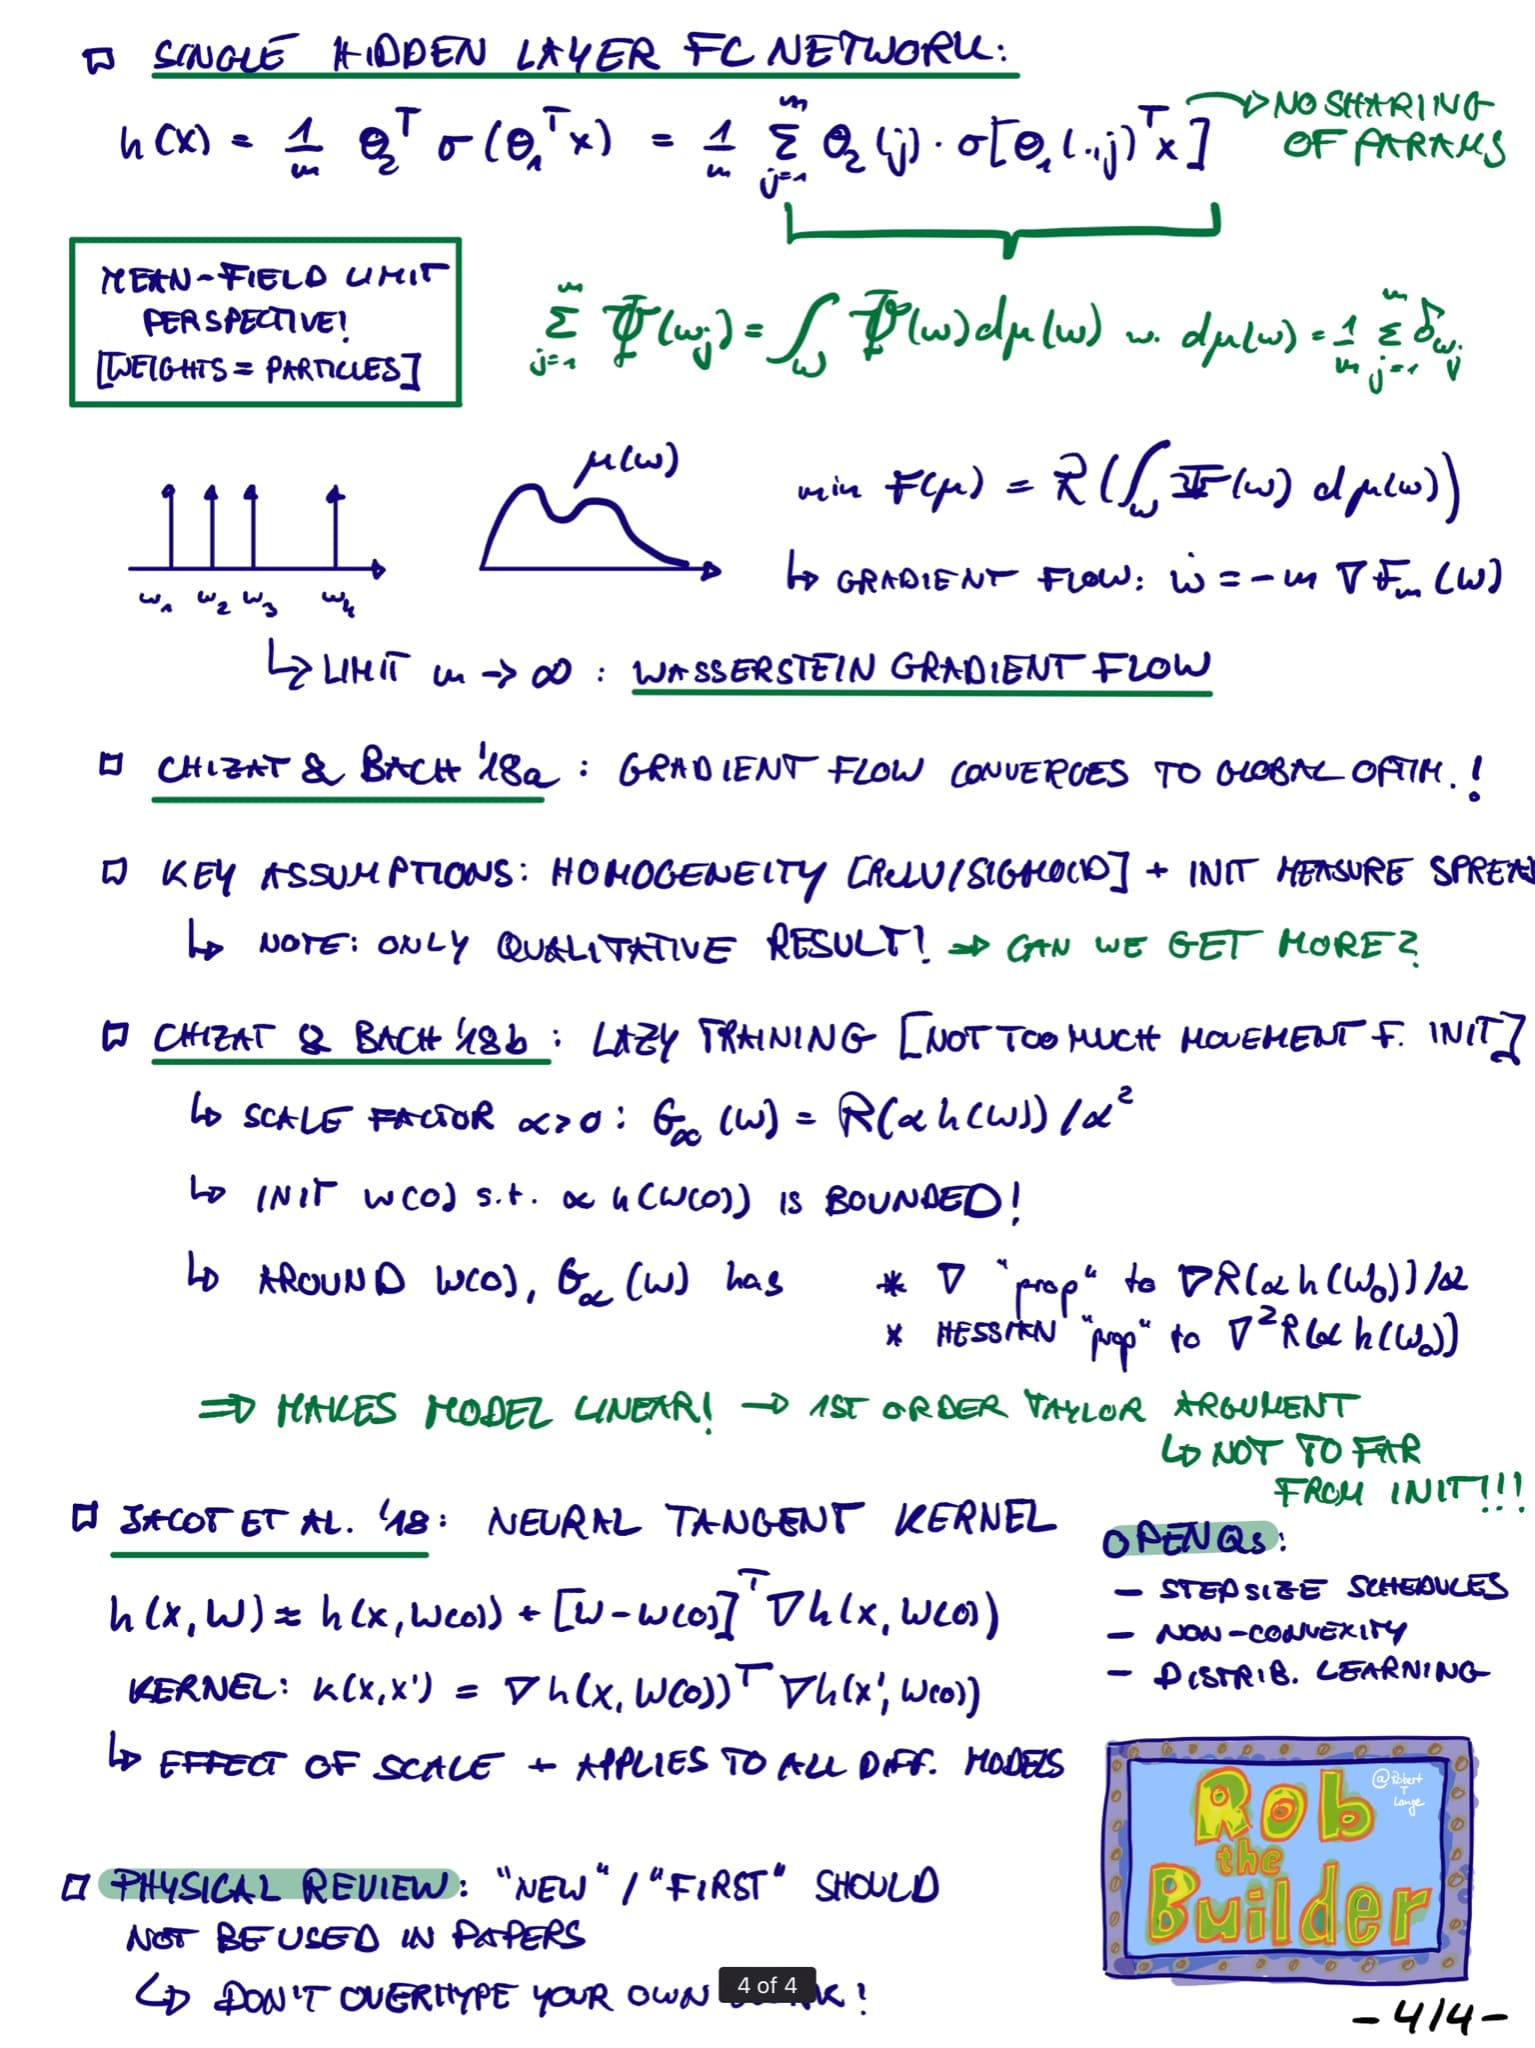 SINGLE HIDDEN LAYER FC NETWORK:
h(x) = 1/m θ₂ᵀ σ(θ₁ᵀx) = 1/m Σ_{j=1}^{m} θ₂(j) · σ[θ₁(.,j)ᵀx] → NO SHARING
OF PARAMS
MEAN-FIELD LIMIT
PERSPECTIVE!
[WEIGHTS = PARTICLES]
Σ_{j=1}^{m} Ψ(w_j) = ∫_W Ψ(w) dμ(w) w. dμ(w) = 1/m Σ_{j=1}^{m} δ_{w_j}
w₁ w₂ w₃ w₄
μ(w)
min F(μ) = R(∫_W Ψ(w) dμ(w))
↳ GRADIENT FLOW: ẇ = -m ∇F_m(W)
↳ LIMIT m → ∞ : WASSERSTEIN GRADIENT FLOW
CHIZAT & BACH '18a : GRADIENT FLOW CONVERGES TO GLOBAL OPTIM.!
KEY ASSUMPTIONS: HOMOGENEITY [ReLU/SIGMOID] + INIT MEASURE SPREAD
↳ NOTE: ONLY QUALITATIVE RESULT! ⇒ CAN WE GET MORE?
CHIZAT & BACH '18b : LAZY TRAINING [NOT TOO MUCH MOVEMENT F. INIT]
↳ SCALE FACTOR α>0 : G_α(W) = R(α h(W))/α²
↳ INIT W(0) s.t. α h(W(0)) IS BOUNDED!
↳ AROUND W(0), G_α(W) has * ∇ "prop" to ∇R(α h(W₀))/α
* HESSIAN "prop" to ∇²R(α h(W₀))
⇒ MAKES MODEL LINEAR! → 1ST ORDER TAYLOR ARGUMENT
↳ NOT TO FAR
FROM INIT!!!
JACOT ET AL. '18: NEURAL TANGENT KERNEL
h(x, W) ≈ h(x, W(0)) + [W - W(0)]ᵀ ∇h(x, W(0))
KERNEL: k(x,x') = ∇h(x, W(0))ᵀ ∇h(x', W(0))
↳ EFFECT OF SCALE + APPLIES TO ALL DIFF. MODELS
OPEN QS:
- STEPSIZE SCHEDULES
- NON-CONVEXITY
- DISTRIB. LEARNING
PHYSICAL REVIEW: "NEW" / "FIRST" SHOULD
NOT BE USED IN PAPERS
↳ DON'T OVERHYPE YOUR OWN
4 of 4
Rob
the
Builder
@Robert
T
Lange
- 4/4 -